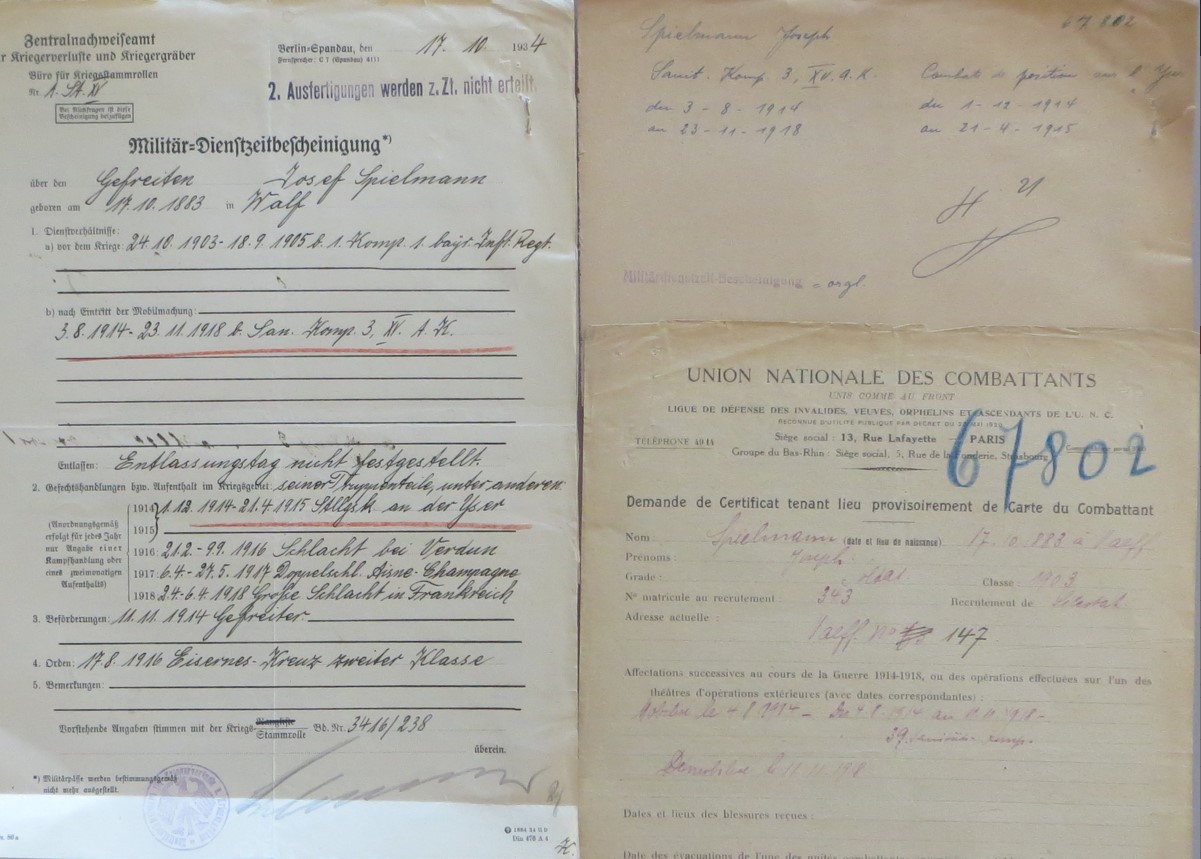 Zentralnachweiseamt
r Kriegerverluste und Kriegergräber
Büro für Kriegsstammrollen
Nr. A. St. IV
Bei Rückfragen ist diese
Bescheinigung beizufügen
Berlin-Spandau, den 17. 10. 1934
Fernsprecher: C 7 (Spandau) 4111
2. Ausfertigungen werden z. Zt. nicht erteilt.
Militär-Dienstzeitbescheinigung*)
über den Gefreiten Josef Spielmann
geboren am 17.10.1883 in Walf
1. Dienstverhältnisse:
a) vor dem Kriege: 24.10.1903-18.9.1905 b. 1. Komp. 1. bayr. Inft. Regt.
b) nach Eintritt der Mobilmachung:
3.8.1914-23.11.1918 b. San. Komp. 3, XV. A. K.
Entlassen: Entlassungstag nicht festgestellt.
2. Gefechtshandlungen bzw. Aufenthalt im Kriegsgebiet: seiner Truppenteile, unter anderen:
(Anordnungsgemäß
erfolgt für jedes Jahr
nur Angabe einer
Kampfhandlung oder
eines zweimonatigen
Aufenthalts)
1914 1.12.1914-21.4.1915 Stllgsk. an der Yser
1915
1916: 21.2.-9.9.1916 Schlacht bei Verdun
1917: 6.4.-27.5.1917 Doppelschl. Aisne-Champagne
1918 24.-6.4.1918 Große Schlacht in Frankreich
3. Beförderungen: 11.11.1914 Gefreiter.
4. Orden: 17.8.1916 Eisernes-Kreuz zweiter Klasse
5. Bemerkungen:
Vorstehende Angaben stimmen mit der Kriegs Rangliste Stammrolle Bd. Nr. 3416/238
überein.
*) Militärpässe werden bestimmungsgemäß
nicht mehr ausgestellt.
Din 476 A 4
67802
Spielmann Joseph
Sanit. Komp. 3, XV. A. K.
du 3-8-1914
au 23-11-1918
Combats de position sur l'Yser
du 1-12-1914
au 21-4-1915
Militärdienstzeit-Bescheinigung = orgl.
UNION NATIONALE DES COMBATTANTS
UNIS COMME AU FRONT
LIGUE DE DÉFENSE DES INVALIDES, VEUVES, ORPHELINS ET ASCENDANTS DE L'U. N. C.
RECONNUE D'UTILITÉ PUBLIQUE PAR DÉCRET DU 20 MAI 1920
TÉLÉPHONE 4914
Siège social : 13, Rue Lafayette — PARIS
Groupe du Bas-Rhin : Siège social, 5, Rue de la Fonderie, Strasbourg
67802
Demande de Certificat tenant lieu provisoirement de Carte du Combattant
Nom : Spielmann (date et lieu de naissance) 17.10.883 à Valff
Prénoms : Joseph
Grade : Classe : 1903
N° matricule au recrutement 343 Recrutement de Sélestat
Adresse actuelle :
Valff No 147
Affectations successives au cours de la Guerre 1914-1918, ou des opérations effectuées sur l'un des
théâtres d'opérations extérieures (avec dates correspondantes) :
Mobilisé le 4 8 1914 - Du 4 8 1914 au 11.11 1918 -
Démobilisé le 11.11 1918
Dates et lieux des blessures reçues :